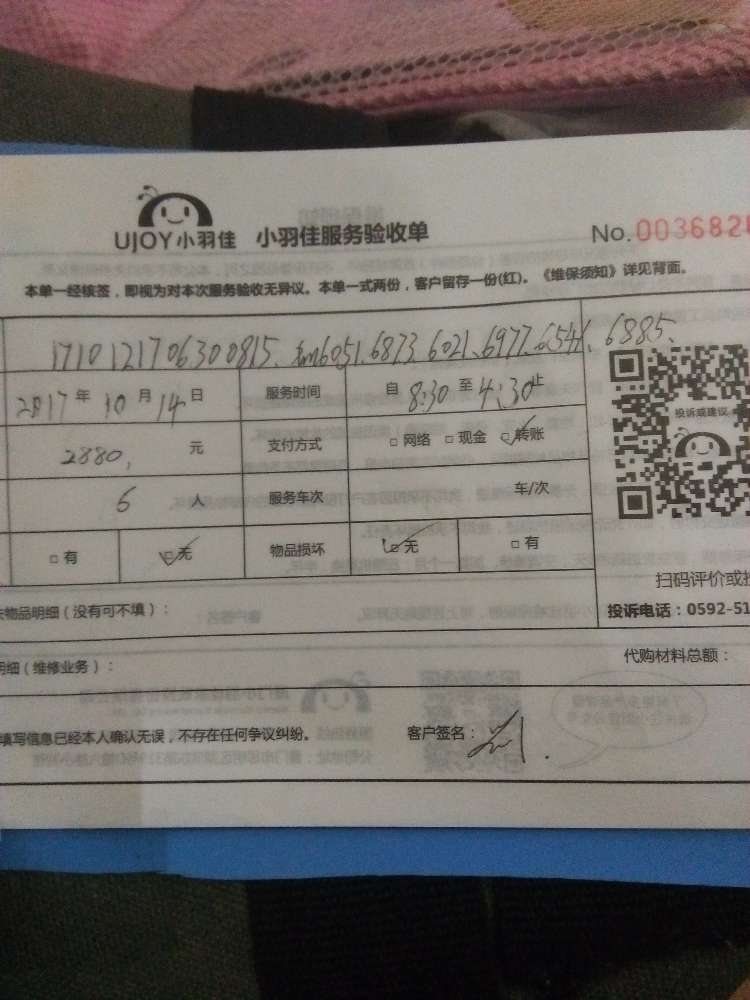 UJOY小羽佳 小羽佳服务验收单 No.003682
本单一经核签，即视为对本次服务验收无异议。本单一式两份，客户留存一份(红)。《维保须知》详见背面。
1710121706300815. 6051.6873.6021.6977.6541.6885.
2017年10月14日 服务时间 自8:30至4:30止
2880. 元 支付方式 □网络 □现金 ☑转账
投诉或建议
6 人 服务车次 车/次
□有 ☑无 物品损坏 ☑无 □有
扫码评价或投
物品明细（没有可不填）： 投诉电话：0592-51
明细（维修业务）： 代购材料总额：
填写信息已经本人确认无误，不存在任何争议纠纷。 客户签名：